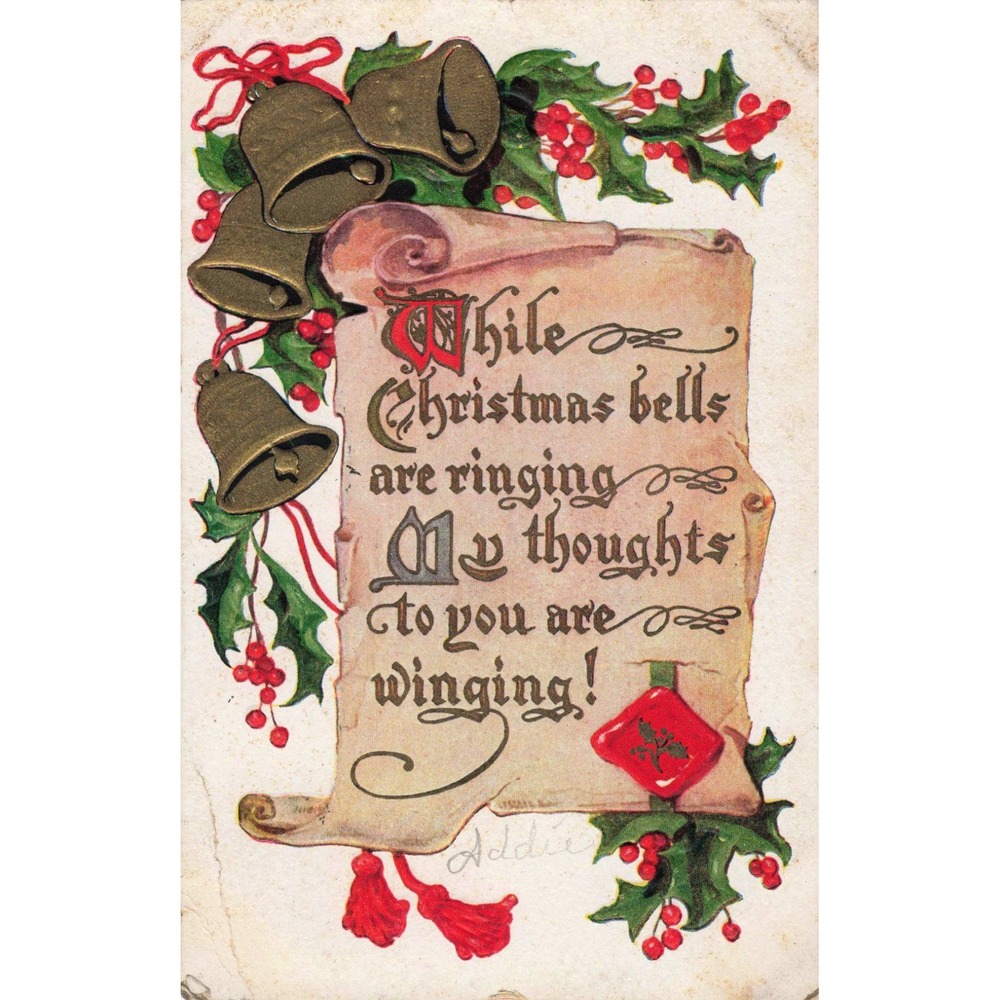 While
Christmas bells
are ringing
My thoughts
to you are
winging!
Addie